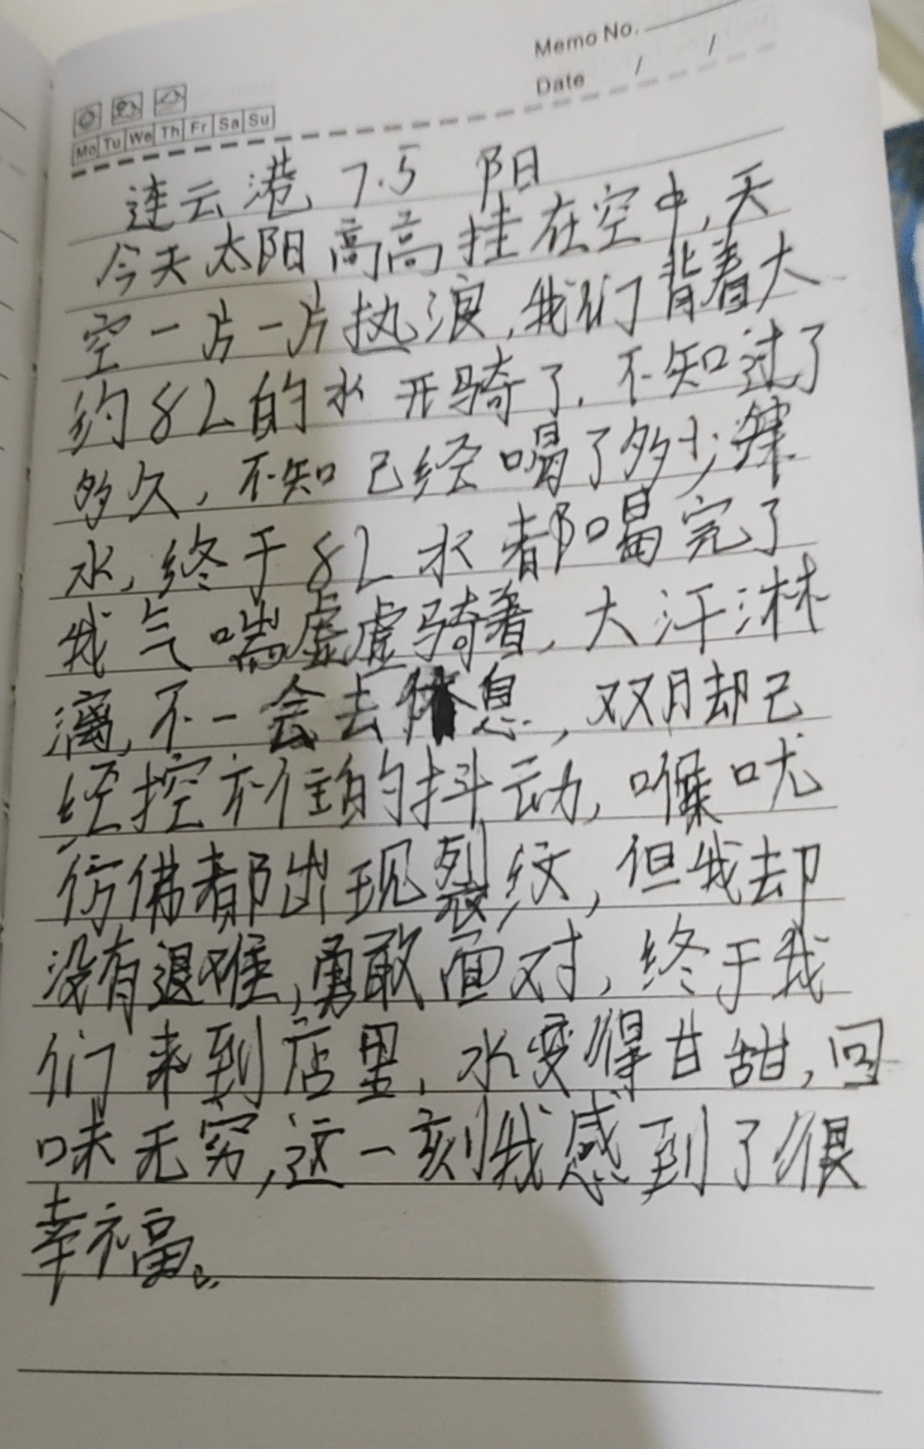 Memo No.
Date / /
Mo Tu We Th Fr Sa Su
连云港 7.5 阳
今天太阳高高挂在空中,天
空一片一片热浪,我们背着大
约8L的水开骑了.不知过了
多久,不知已经喝了多少
水,终于8L水都喝完了
我气喘虚虚骑着,大汗淋
漓,不一会去休息,双月却已
经控不住的抖动,喉咙
仿佛都出现裂纹,但我却
没有退难,勇敢面对,终于我
们来到店里,水变得甘甜,回
味无穷,这一刻我感到了很
幸福。